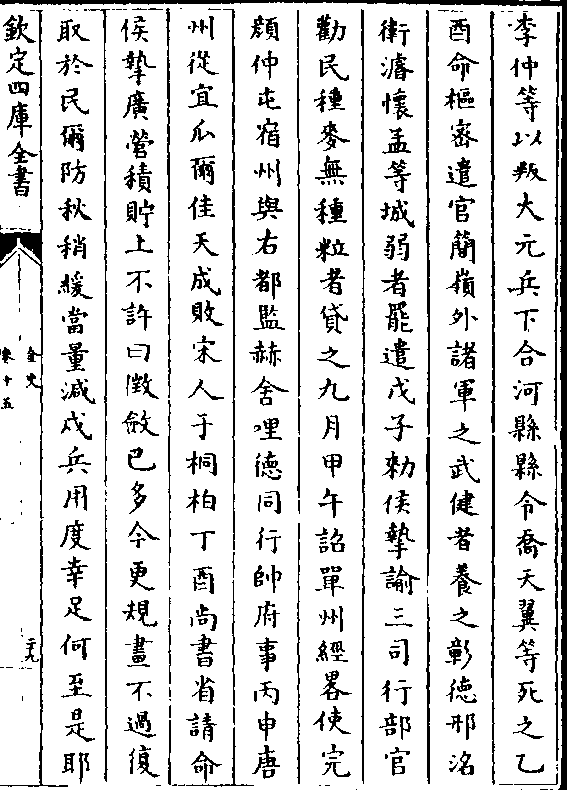 李仲等以叛大元兵下合河縣縣令喬天翼等死之乙
酉命樞密遣官簡嶺外諸軍之武健者養之彰德邢洺
衛濬懷孟等城弱者罷遣戊子勅侯摯諭三司行部官
勸民種麥無種粒者貸之九月甲午詔單州經畧使完
顔仲屯宿州與右都監赫舍哩德同行帥府事丙申唐
州從宜瓜爾佳天成敗宋人于桐柏丁酉尚書省請命
侯摯廣營積貯上不許曰徴斂已多今更規畫不過復
取於民爾防秋稍緩當量減戍兵用度幸足何至是耶
欽定四庫全書
金史
卷十五
二九